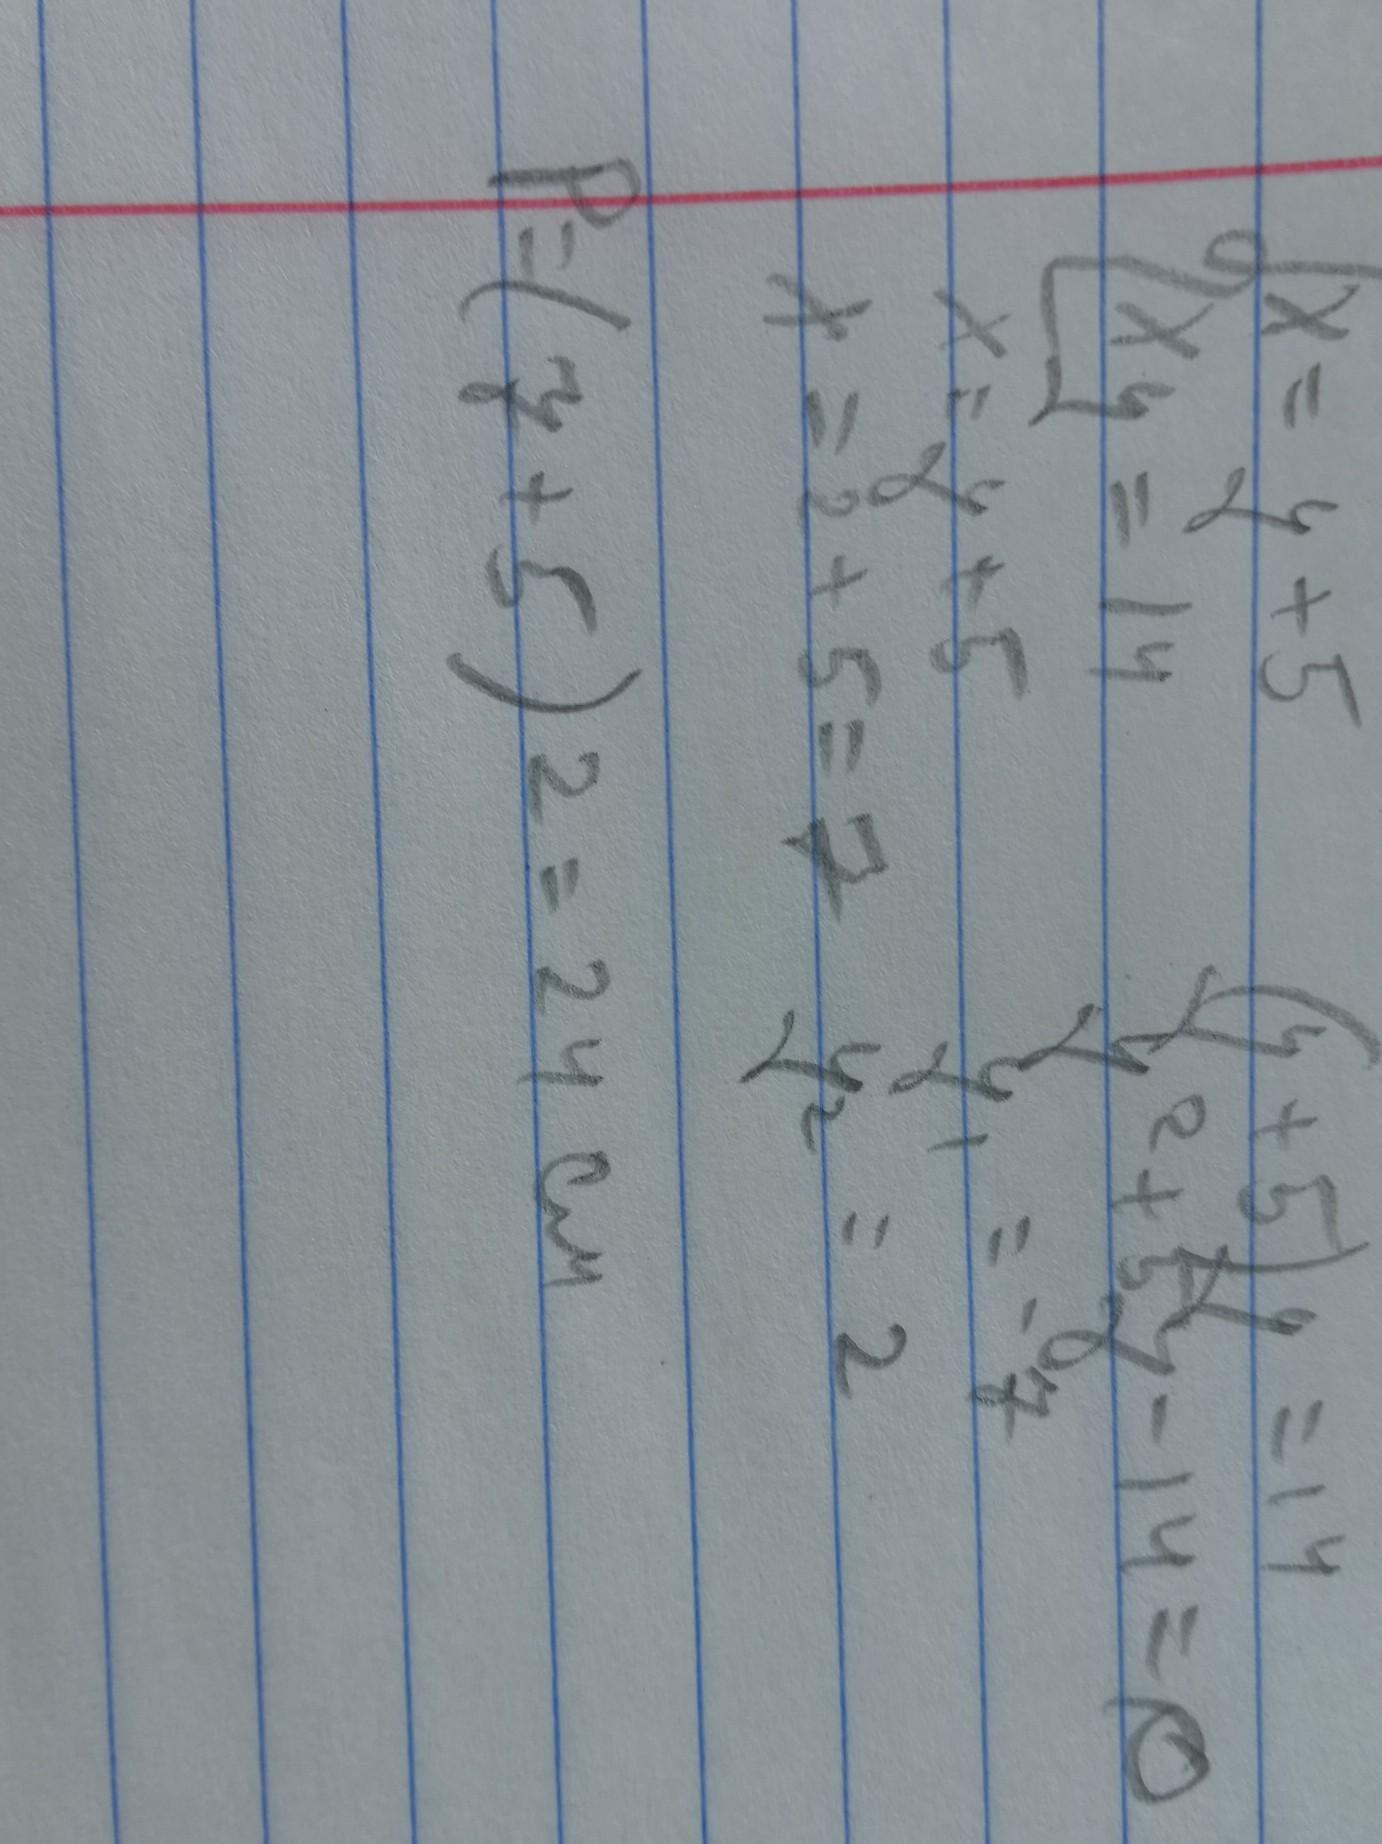 x = y + 5
xy = 14
x = y + 5
x = 2 + 5 = 7
(y + 5)y = 14
y2 + 5y - 14 = 0
y1 = -7
y2 = 2
P = (7 + 5) 2 = 24 см